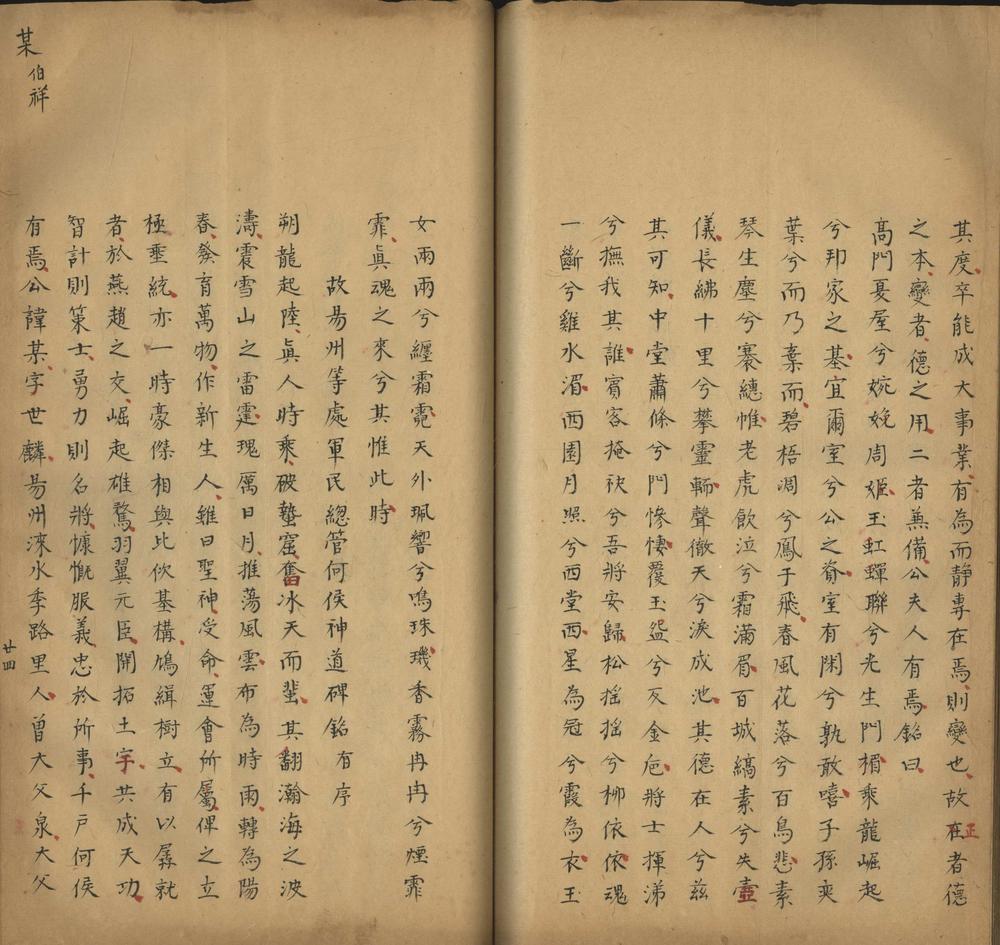 其度卒能成大事業有為而靜專在焉則變也故在者德
正
之本變者德之用二者兼備公夫人有焉銘曰
高門戛屋兮婉娩周姬玉虹蟬聯兮光生門楣乘龍崛起
兮邦家之基宜爾室兮公之資室有閑兮孰敢嘻子孫奕
葉兮而乃棄而碧梧凋兮鳳子飛春風花落兮百鳥悲素
琴生塵兮褰繐帷老虎飲泣兮霜滿眉百城縞素兮失壼
儀長紼十里兮攀靈輀聲徹天兮淚成池其德在人兮茲
其可知中堂蕭條兮門慘悽覆玉盌兮仄金卮將士揮涕
兮撫我其誰賓客掩袂兮吾將安歸松搖搖兮柳依依魂
一斷兮雞水湄西園月照兮西堂西星為冠兮霞為衣玉
女兩兩兮纚霜霓天外珮響兮鳴珠璣香霧冉冉兮煙霏
霏真魂之來兮其惟此時
故易州等處軍民總管何侯神道碑銘有序
朔龍起陸真人時乘破蟄窟奮冰天而蜚其翻瀚海之波
濤震雪山之雷霆瑰厲日月推蕩風雲布為時雨轉為陽
春發育萬物作新生人雖曰聖神受命運會所屬俾之立
極垂統亦一時豪傑相與比佽基構鳩緝樹立有以孱就
者於燕趙之交崛起雄騖羽翼元臣開拓土宇共成天功
智計則策士勇力則名將慷慨服義忠於所事千戶何侯
有焉公諱某字世麟易州淶水季路里人曾大父泉大父
廿四
某伯祥